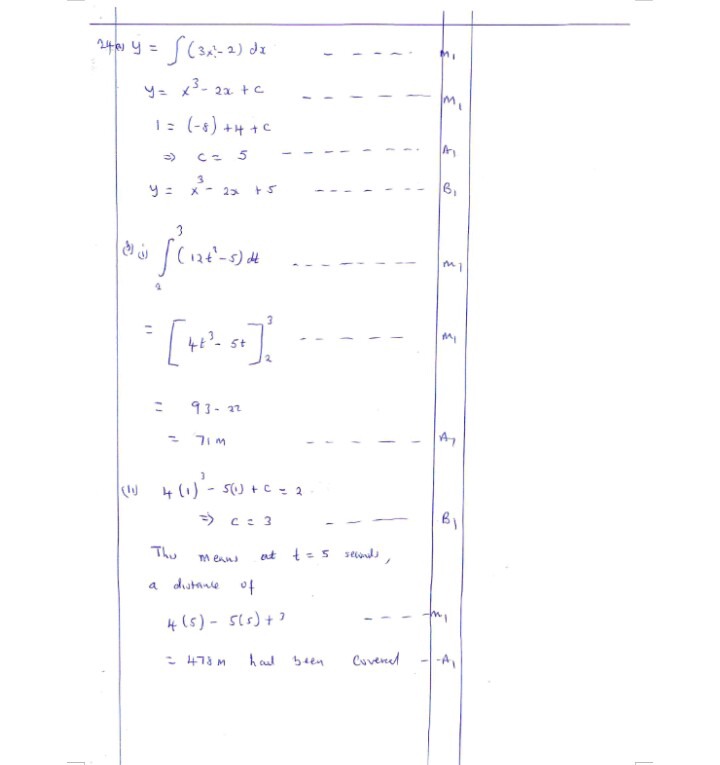 24(a) y = ∫(3x² - 2) dx - - - - - M1
y = x³ - 2x + c - - - - - M1
1 = (-8) + 4 + c
⇒ c = 5 - - - - - - - A1
y = x³ - 2x + 5 - - - - - - B1
(b) (i) ∫₂³ (12t² - 5) dt - - - - - - - M1
= [4t³ - 5t]₂³ - - - - - M1
= 93 - 22
= 71 m - - - - - A1
(ii) 4(1)³ - 5(1) + c = 2
⇒ c = 3 - - - B1
This means at t = 5 seconds,
a distance of
4(5) - 5(5) + 3 - - - - M1
= 478 m had been covered - - A1